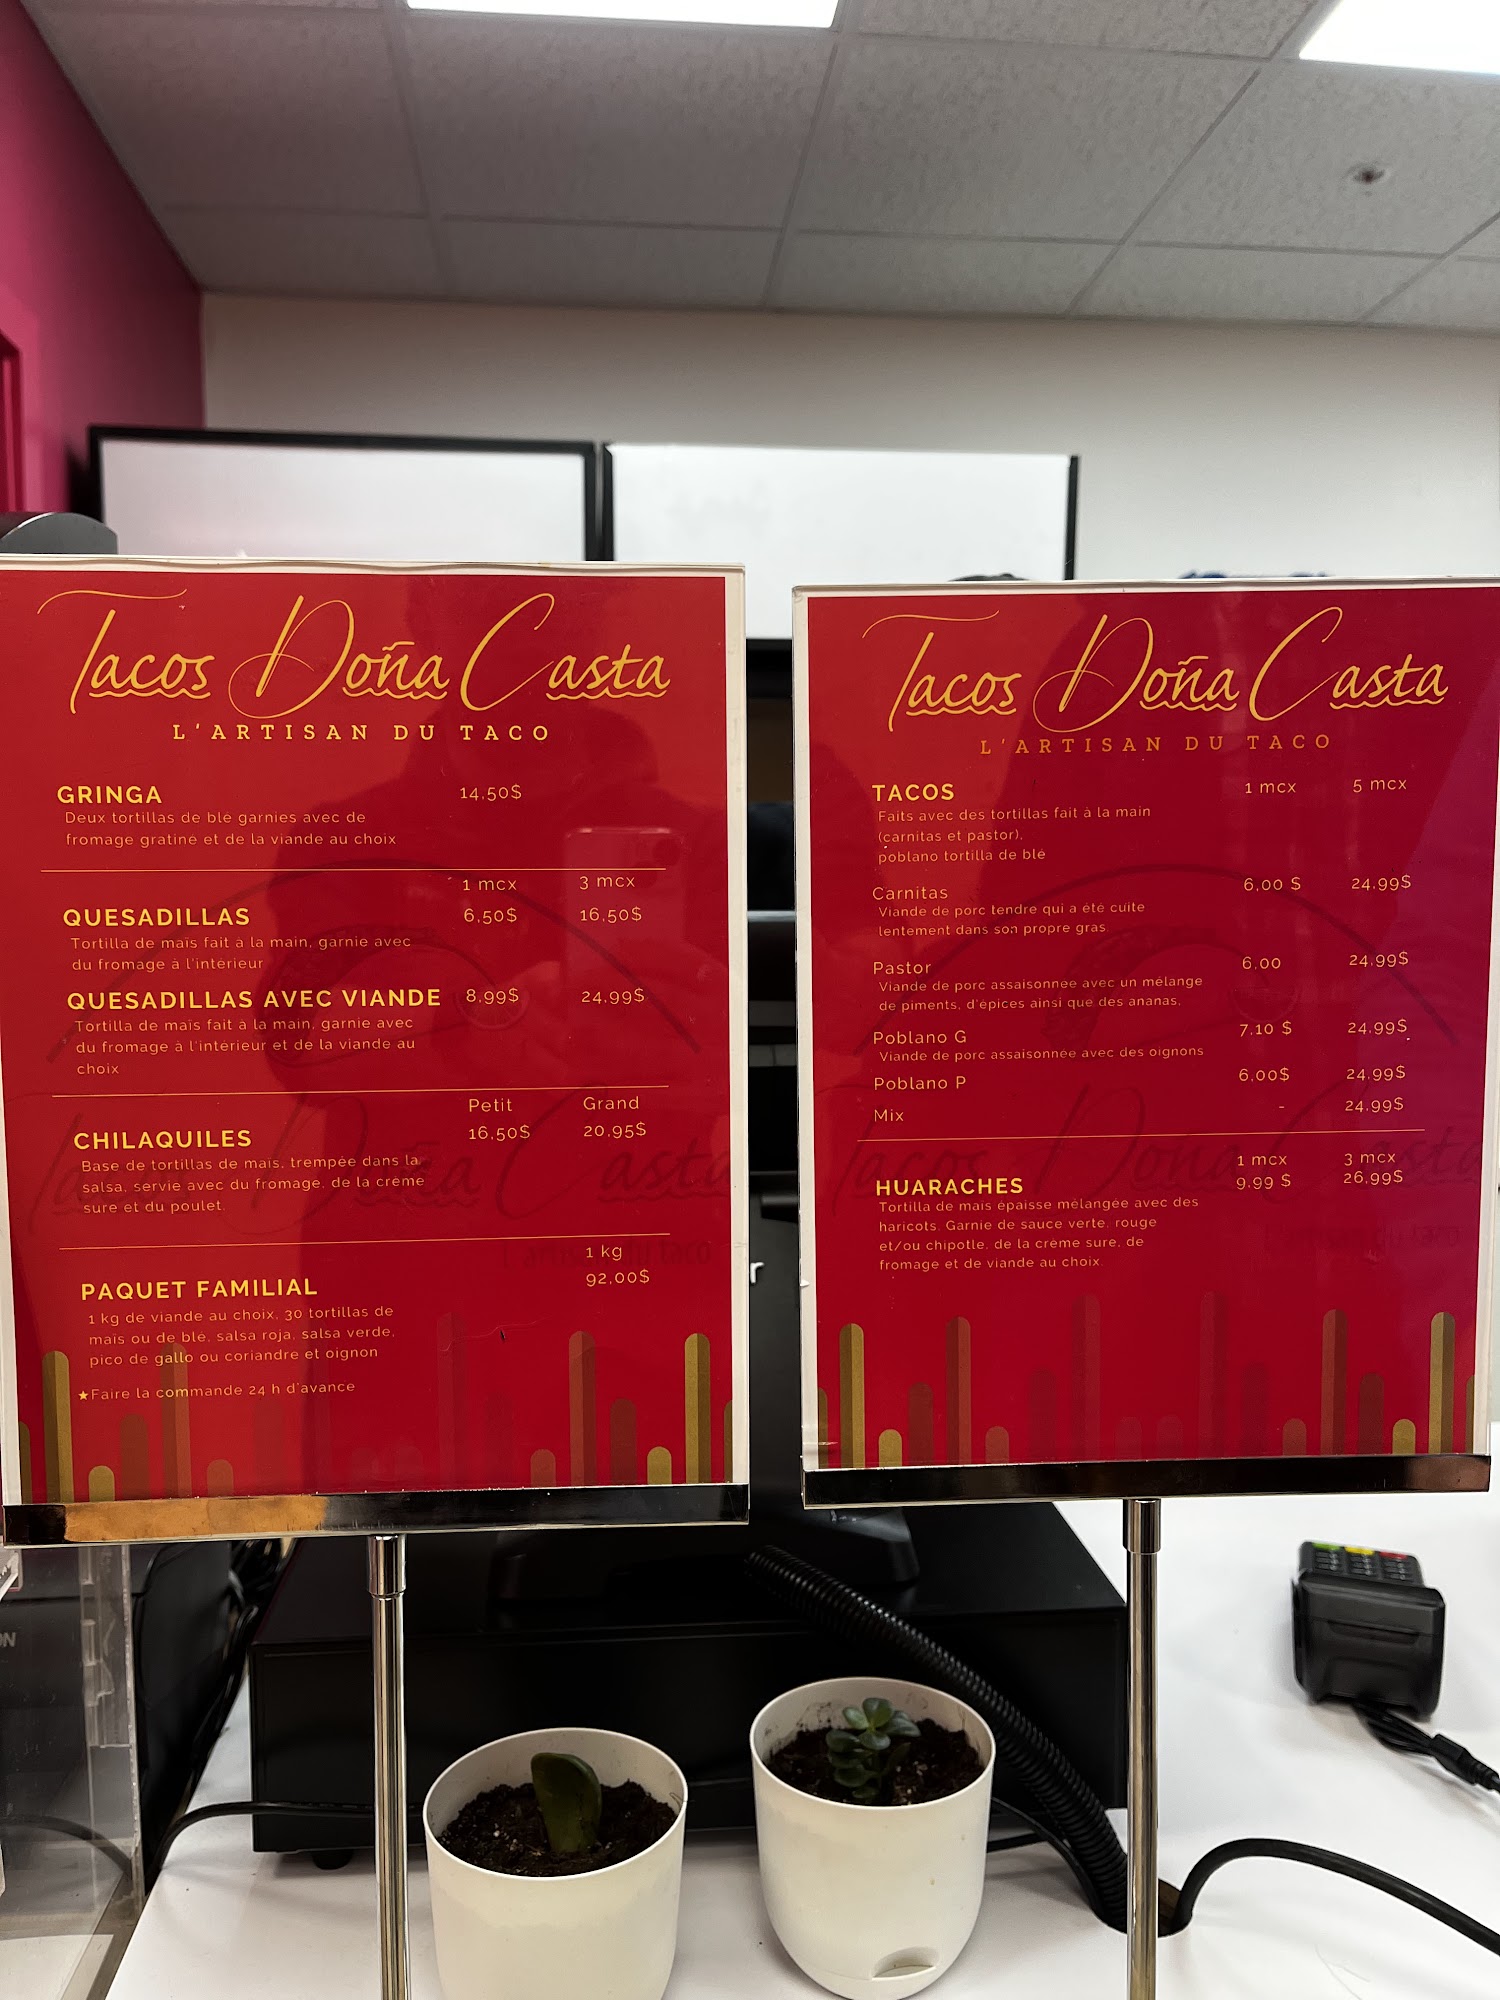 Tacos Doña Casta
L'ARTISAN DU TACO
GRINGA 14,50$
Deux tortillas de blé garnies avec de
fromage gratiné et de la viande au choix
1 mcx 3 mcx
QUESADILLAS 6,50$ 16,50$
Tortilla de maïs fait à la main, garnie avec
du fromage à l'intérieur
QUESADILLAS AVEC VIANDE 8,99$ 24,99$
Tortilla de maïs fait à la main, garnie avec
du fromage à l'intérieur et de la viande au
choix
Petit Grand
CHILAQUILES 16,50$ 20,95$
Base de tortillas de maïs, trempée dans la
salsa, servie avec du fromage, de la crème
sure et du poulet.
1 kg
PAQUET FAMILIAL 92,00$
1 kg de viande au choix, 30 tortillas de
maïs ou de blé, salsa roja, salsa verde,
pico de gallo ou coriandre et oignon
★Faire la commande 24 h d'avance
Tacos Doña Casta
L'ARTISAN DU TACO
TACOS 1 mcx 5 mcx
Faits avec des tortillas fait à la main
(carnitas et pastor),
poblano tortilla de blé
Carnitas 6,00 $ 24,99$
Viande de porc tendre qui a été cuite
lentement dans son propre gras.
Pastor 6,00 24,99$
Viande de porc assaisonnée avec un mélange
de piments, d'épices ainsi que des ananas,
Poblano G 7,10 $ 24,99$
Viande de porc assaisonnée avec des oignons
Poblano P 6,00$ 24,99$
Mix - 24,99$
1 mcx 3 mcx
HUARACHES 9,99 $ 26,99$
Tortilla de maïs épaisse mélangée avec des
haricots. Garnie de sauce verte, rouge
et/ou chipotle, de la crème sure, de
fromage et de viande au choix.